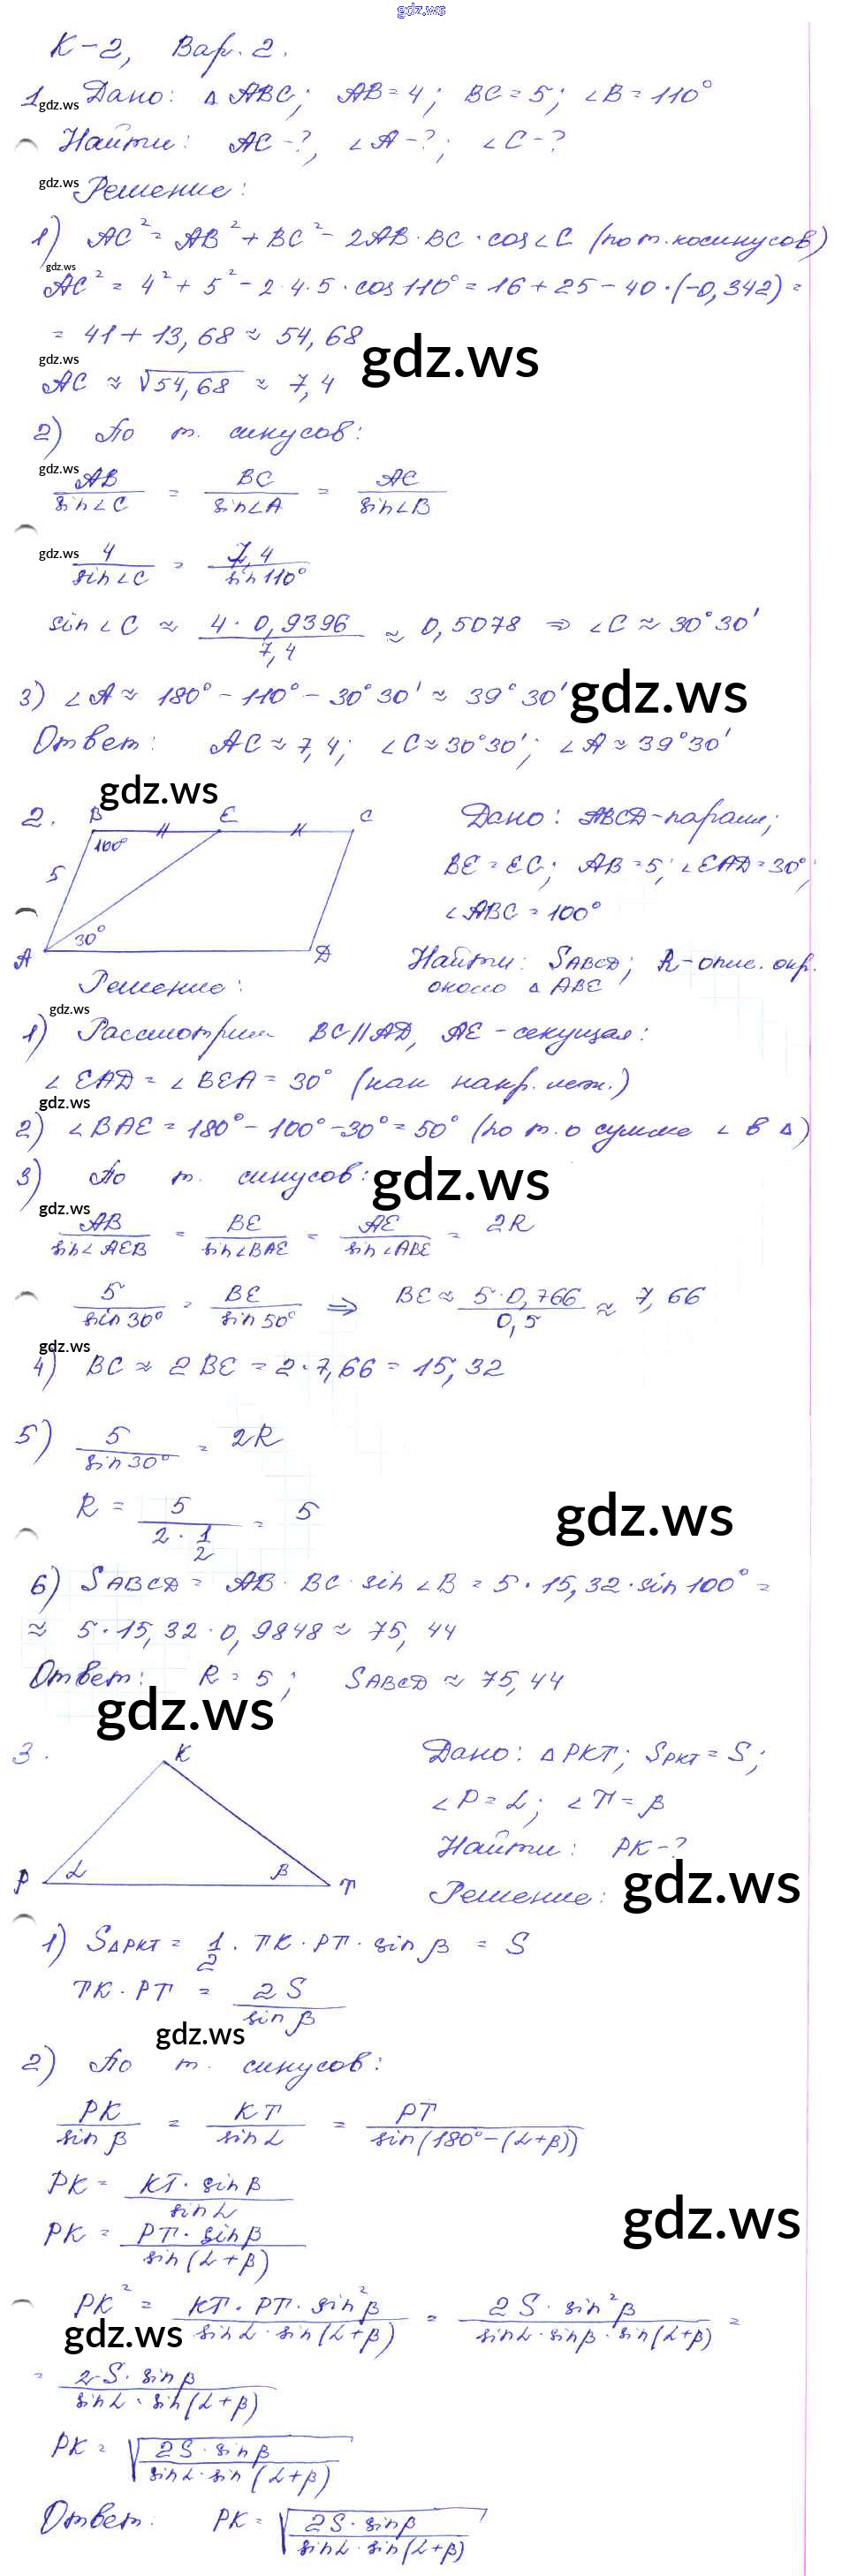 gdz.ws
К-2, Вар. 2.
1. Дано: △ ABC; AB = 4; BC = 5; ∠B = 110°
gdz.ws
Найти: AC-?, ∠A-?; ∠C-?
gdz.ws
Решение:
1) AC² = AB² + BC² - 2AB·BC·cos∠C (по т. косинусов)
gdz.ws
AC² = 4² + 5² - 2·4·5·cos110° = 16 + 25 - 40·(-0,342) =
= 41 + 13,68 ≈ 54,68
gdz.ws
gdz.ws
AC ≈ √54,68 ≈ 7,4
2) По т. синусов:
gdz.ws
AB/sin∠C = BC/sin∠A = AC/sin∠B
gdz.ws
4/sin∠C = 7,4/sin110°
sin∠C ≈ 4·0,9396/7,4 ≈ 0,5078 ⇒ ∠C ≈ 30°30'
3) ∠A ≈ 180° - 110° - 30°30' ≈ 39°30'
gdz.ws
Ответ: AC ≈ 7,4; ∠C ≈ 30°30'; ∠A ≈ 39°30'
gdz.ws
2. B E C
100°
5
30°
A D
Дано: ABCD-паралл;
BE = EC; AB = 5; ∠EAD = 30°;
∠ABC = 100°
Найти: SABCD; R-опис. окр.
около △ ABE
Решение:
gdz.ws
1) Рассмотрим BC||AD, AE - секущая:
∠EAD = ∠BEA = 30° (как накр. леж.)
gdz.ws
2) ∠BAE = 180° - 100° - 30° = 50° (по т. о сумме ∠ в △)
3) По т. синусов:
gdz.ws
gdz.ws
AB/sin∠AEB = BE/sin∠BAE = AE/sin∠ABE = 2R
5/sin30° = BE/sin50° ⇒ BE ≈ 5·0,766/0,5 ≈ 7,66
gdz.ws
4) BC ≈ 2BE = 2·7,66 = 15,32
5) 5/sin30° = 2R
R = 5/2·1/2 = 5
gdz.ws
6) SABCD = AB·BC·sin∠B = 5·15,32·sin100° =
≈ 5·15,32·0,9848 ≈ 75,44
Ответ: R = 5; SABCD ≈ 75,44
gdz.ws
3. K
P α β T
Дано: △ PKT; SPKT = S;
∠P = α; ∠T = β
Найти: PK-?
gdz.ws
Решение:
1) S△PKT = 1/2·TK·PT·sinβ = S
TK·PT = 2S/sinβ
gdz.ws
2) По т. синусов:
PK/sinβ = KT/sinα = PT/sin(180°-(α+β))
PK = KT·sinβ/sinα
gdz.ws
PK = PT·sinβ/sin(α+β)
PK² = KT·PT·sin²β/sinα·sin(α+β) = 2S·sin²β/sinα·sinβ·sin(α+β) =
gdz.ws
= 2S·sinβ/sinα·sin(α+β)
PK = √2S·sinβ/sinα·sin(α+β)
Ответ: PK = √2S·sinβ/sinα·sin(α+β)